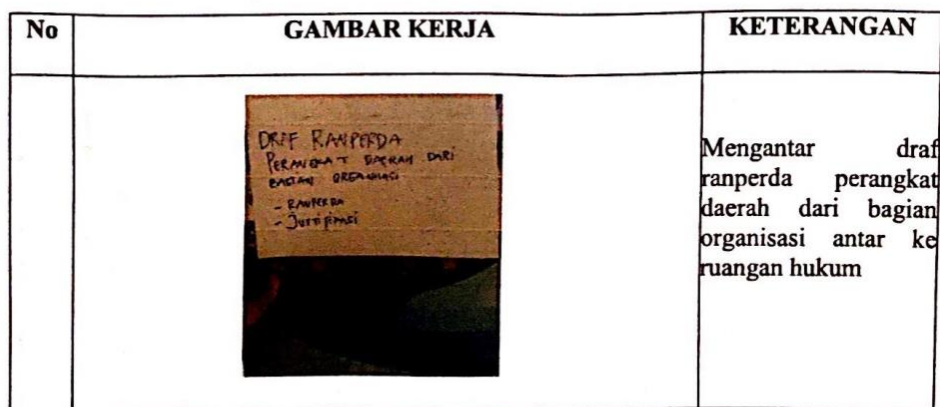 No
GAMBAR KERJA
KETERANGAN
DRAF RANPERDA
PERANGKAT DAERAH DARI
BAGIAN ORGANISASI
- RANPERDA
- Justifikasi
Mengantar draf
ranperda perangkat
daerah dari bagian
organisasi antar ke
ruangan hukum